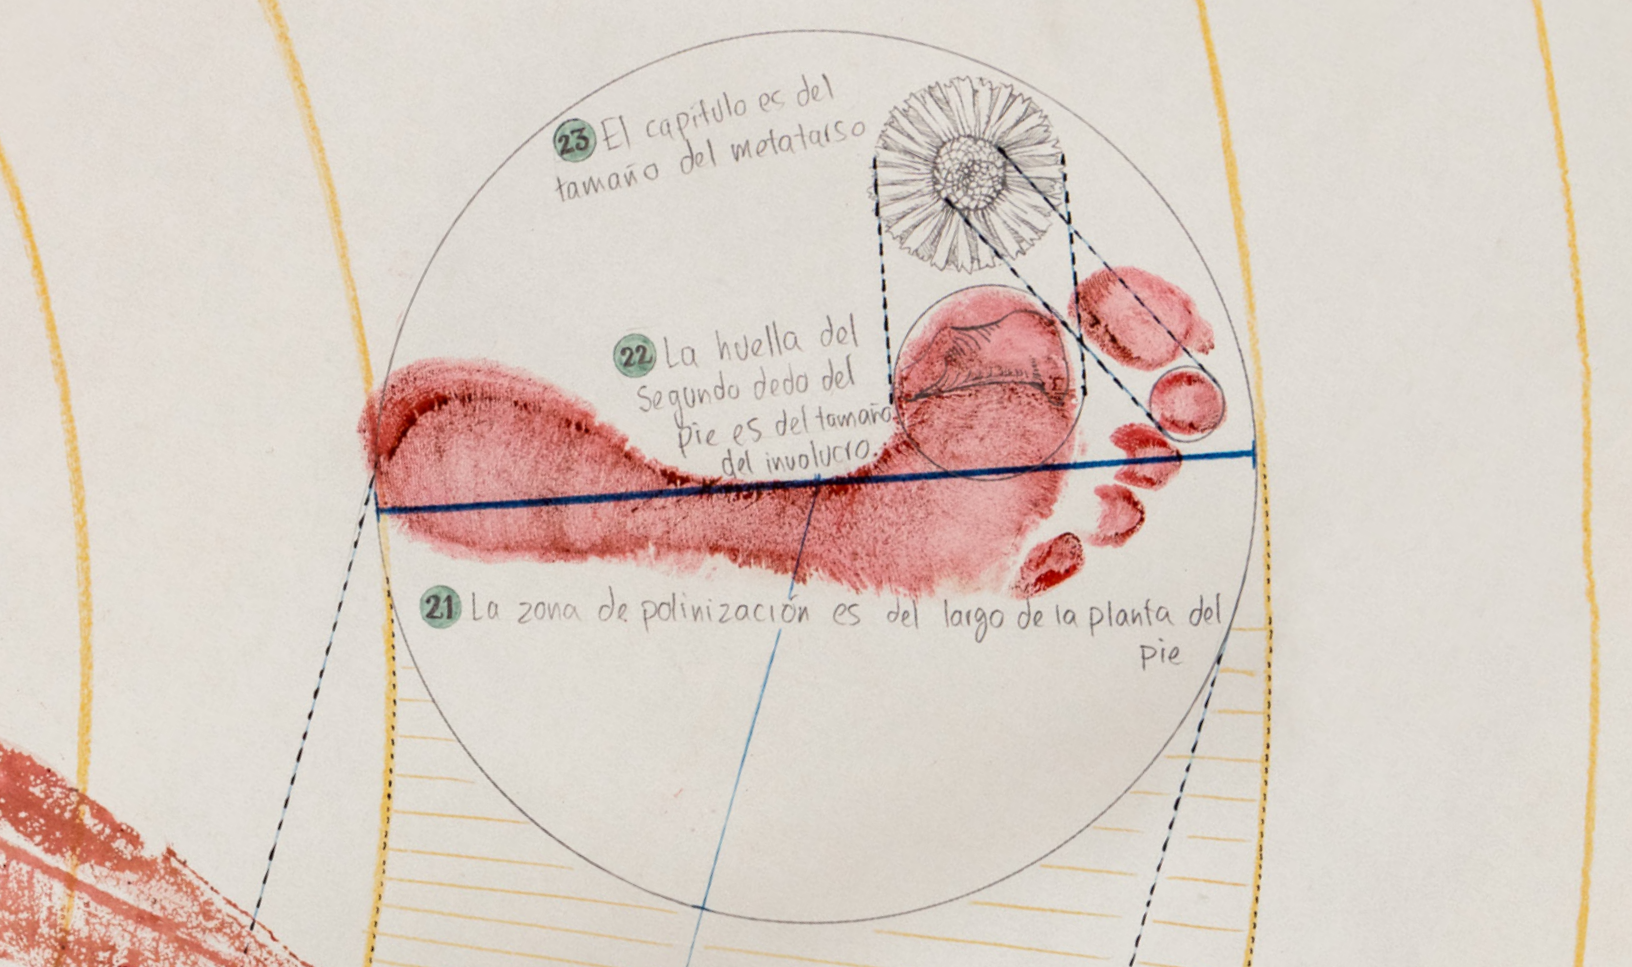 23 El capítulo es del
tamaño del metatarso
22 La huella del
segundo dedo del
pie es del tamaño
del involucro.
21 La zona de polinización es del largo de la planta del
pie